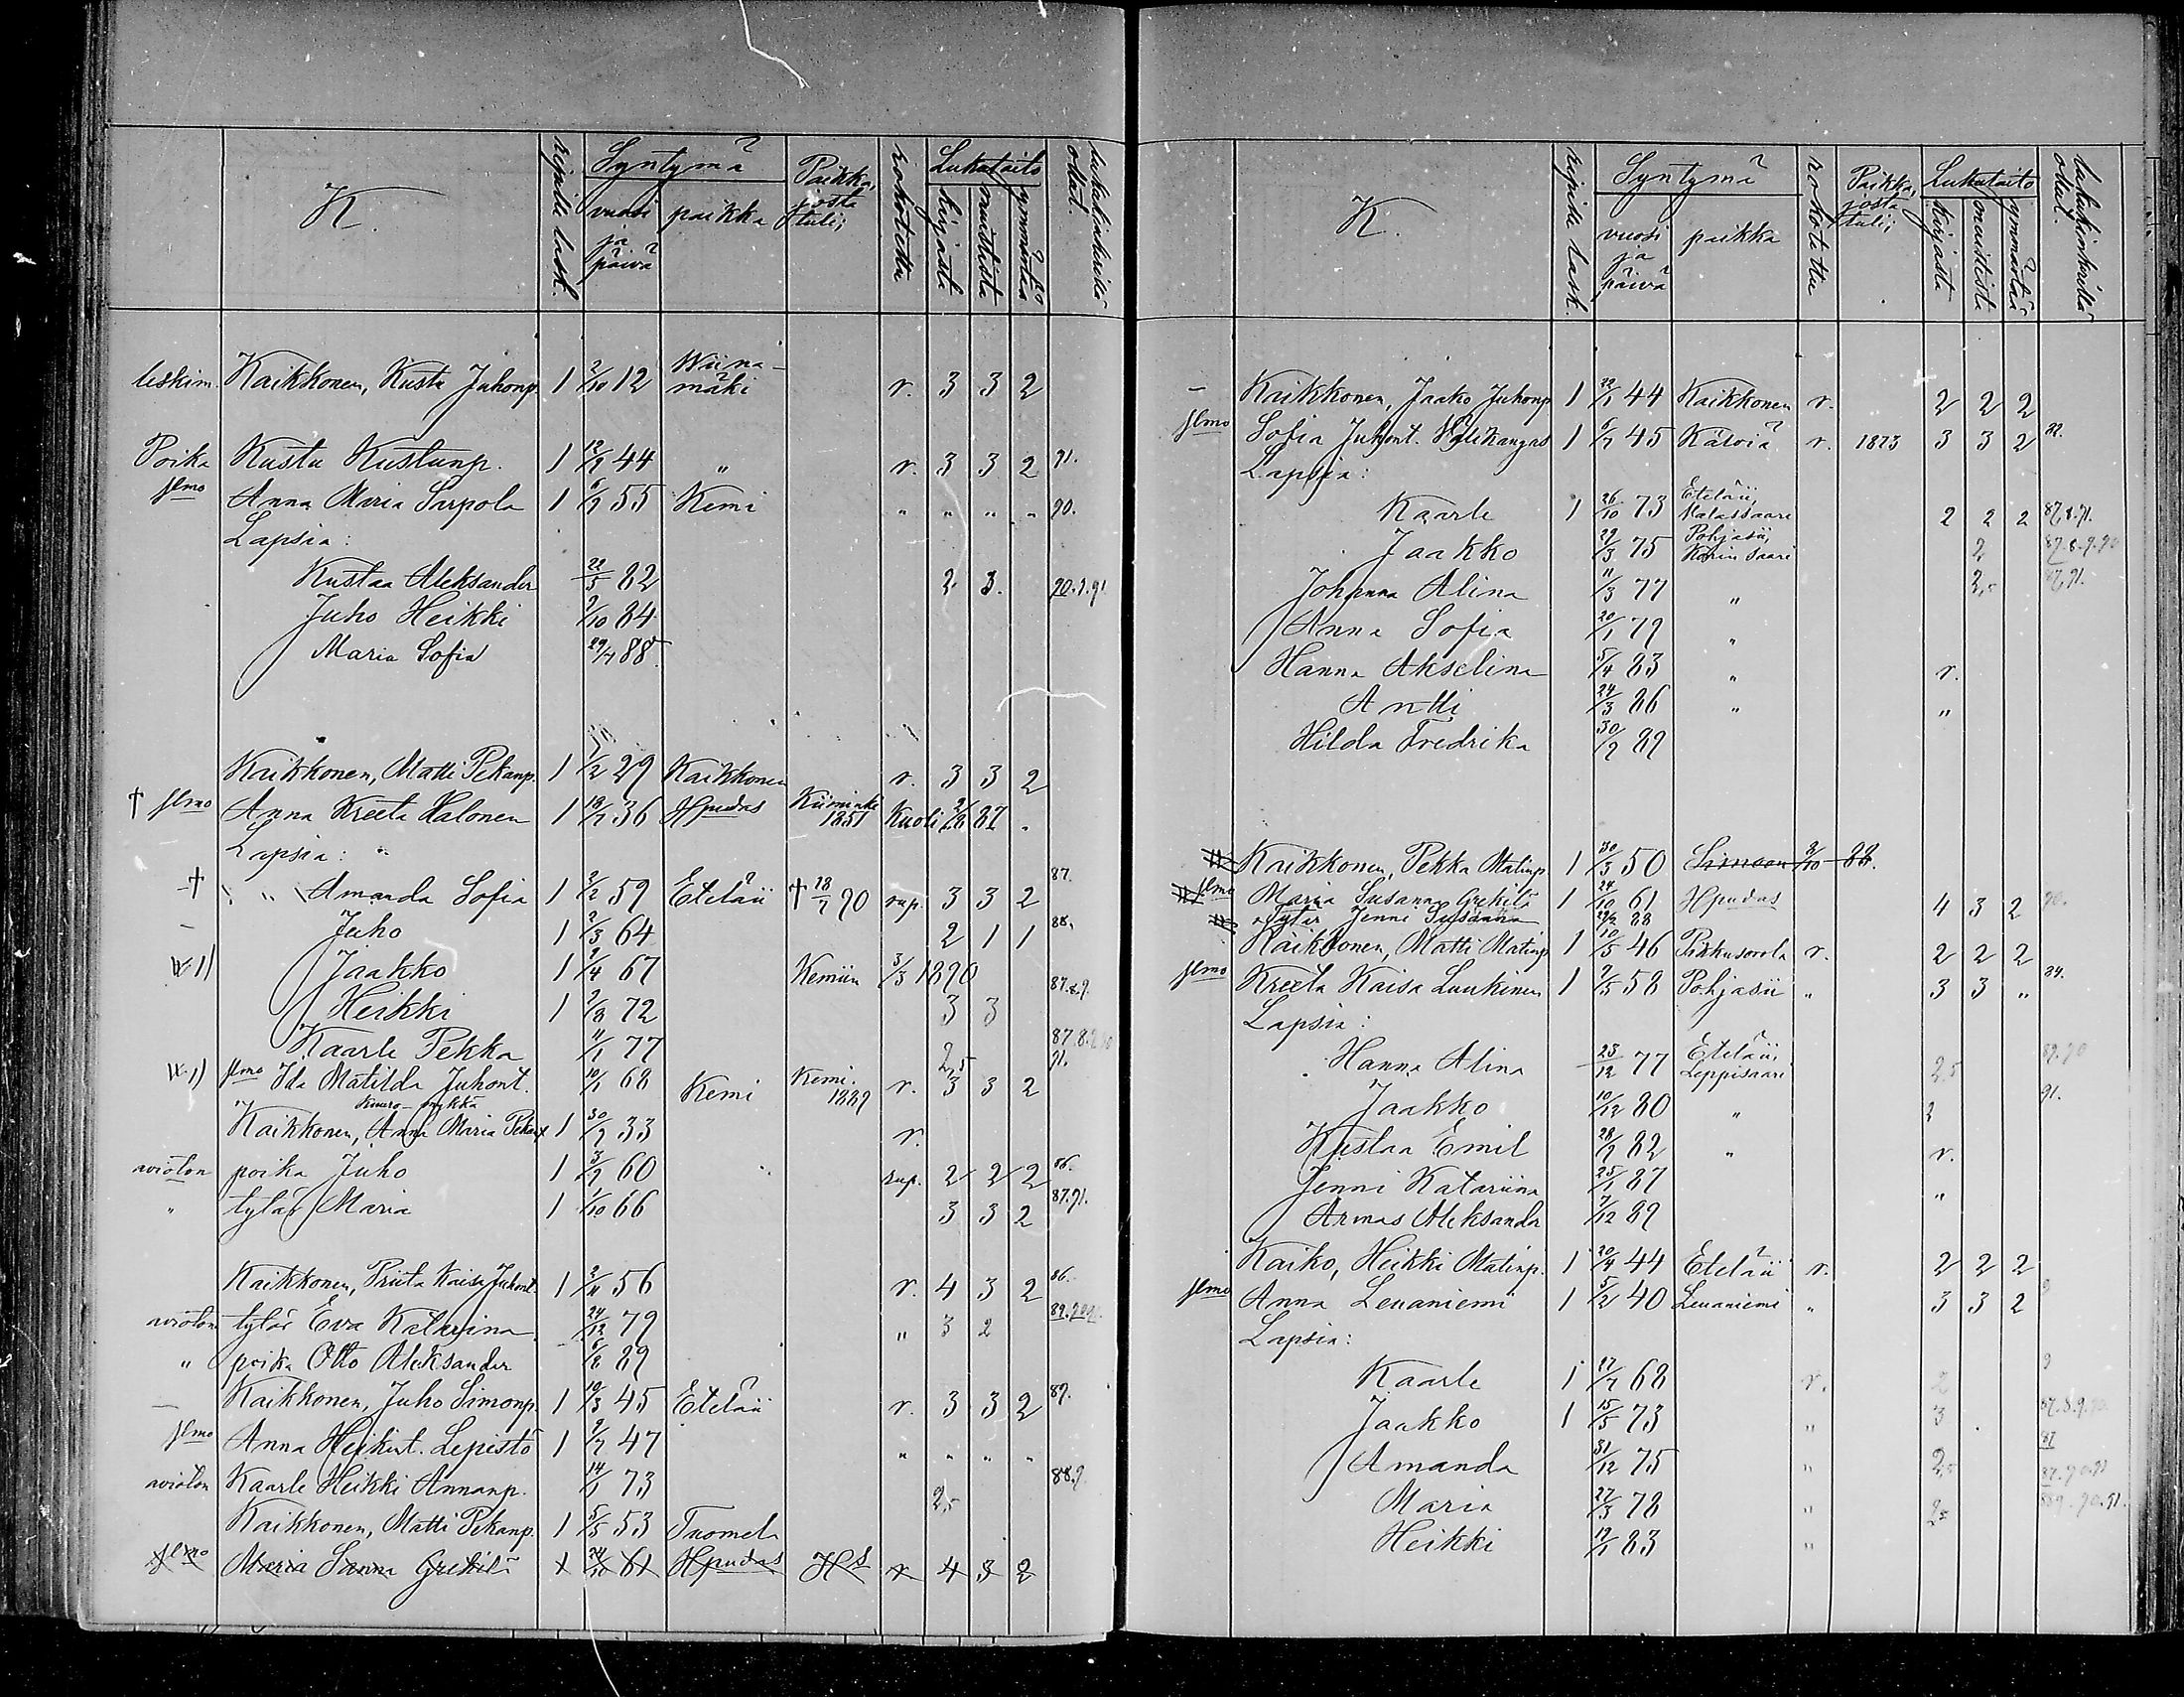 K. ripille lask. Syntymä vuosi ja päivä paikka Paikka, josta tuli; rokotettu Lukutaito kirjasta muistista ymmärtää lukukinkerillä ollut.
leskim. Kaikkonen, Kusta Juhonp. 1 2/10 12 Wiina-mäki r. 3 3 2
Poika Kusta Kustanp. 1 12/9 44 " r. 3 3 2 91.
Anna Maria Sarpola 1 6/9 55 Kemi " " " " 90.
Lapsia:
Kustaa Aleksander 22/5 82 2 3.
Juho Heikki 9/10 84
Maria Sofia 29/7 88.
Kaikkonen, Matti Pekanp. 1 1/2 29 Kaikkonen r. 3 3 2
† Anna Kreeta Halonen 1 18/7 36 Hpudas Kiiminki 1851 Kuoli 2/8 87
Lapsia:
-† Amanda Sofia 1 2/2 59 Eteläii † 18/7 90 rup. 3 3 2 87.
- Juho 1 2/3 64 2 1 1 88.
Jaakko 1 9/4 67 Kemiin 3/3 1890
Heikki 1 9/8 72 3 3 87.8.9.
Kaarle Pekka 11/1 77 2,5
Ida Matilda Juhont. 10/1 68 Kemi Kemi. 1889 r. 3 3 2
Kuuro-mykkä
Kaikkonen, Anna Maria 1 30/9 33 r.
avioton poika Juho 1 3/9 60 rup. 2 2 2 86.
" tytär Maria 1 1/10 66 3 3 2 87.91.
Kaikkonen, Priita Kaisa Juhont. 1 2/11 56 r. 4 3 2 86.
avioton tytär Eva Katariina 24/12 79 " 3 2
" poika Otto Aleksander 6/8 89
- Kaikkonen, Juho Simonp. 1 10/3 45 Eteläii r. 3 3 2 89.
Anna Heikint. Lepistö 1 9/7 47 " " " "
avioton Kaarle Heikki Annanp. 14/1 73 2,5 88.9.
Kaikkonen, Matti Pekanp. 1 5/5 53 Tuomela
Maria Sanna Grekilä 1 24/10 61 Hpudas r 4 3 2
K. ripille lask. Syntymä vuosi ja päivä paikka rokotettu Paikka, josta tuli; Lukutaito kirjasta muistista ymmärtää lukukinkerillä ollut.
- Kaikkonen, Jaako Juhonp 1 22/1 44 Kaikkonen r. 2 2 2
Sofia Juhont. Välikangas 1 6/7 45 Kälviä r. 1873 3 3 2
Lapsia:
Kaarle 1 26/10 73 Eteläii, 2 2 2 87.8.91.
Jaakko 29/3 75 Pohjasii, Karin saari 2 87.8.9.90
Johanna Alina 11/3 77 " 2,5 87.91.
Anna Sofia 20/1 79 "
Hanna Akselina 5/4 83 " r.
Antti 24/3 86 " "
Hilda Fredrika 30/9 89
Kaikkonen, Pekka Matinp 1 30/3 50 Simoon 8/10 88.
Maria Susanna Grekilä 1 24/10 61 Hpudas 4 3 2 90.
Tytär Jenni Susanna 88
Kaikkonen, Matti Matinp 1 10/5 46 Pikkusorola r. 2 2 2
Kreeta Kaisa Luukinen 1 9/5 58 Pohjasii " 3 3 " 89.
Lapsia:
Hanna Alina 23/12 77 Eteläii, Leppisaari 2,5 89.90
Jaakko 10/12 80 " 2 91.
Kustaa Emil 28/9 82 " r.
Jenni Katariina 25/1 87 "
Armas Aleksander 7/12 89
Kaiko, Heikki Matinp. 1 20/9 44 Eteläii r. 2 2 2
Anna Leuaniemi 1 5/2 40 Leuaniemi " 3 3 2
Lapsia:
Kaarle 1 27/7 68 r. 2 9
Jaakko 1 15/5 73 " 3 87.8.9.90
Amanda 31/12 75 " 2,5 87
Maria 27/3 78 " 2,5
Heikki 19/1 83 "